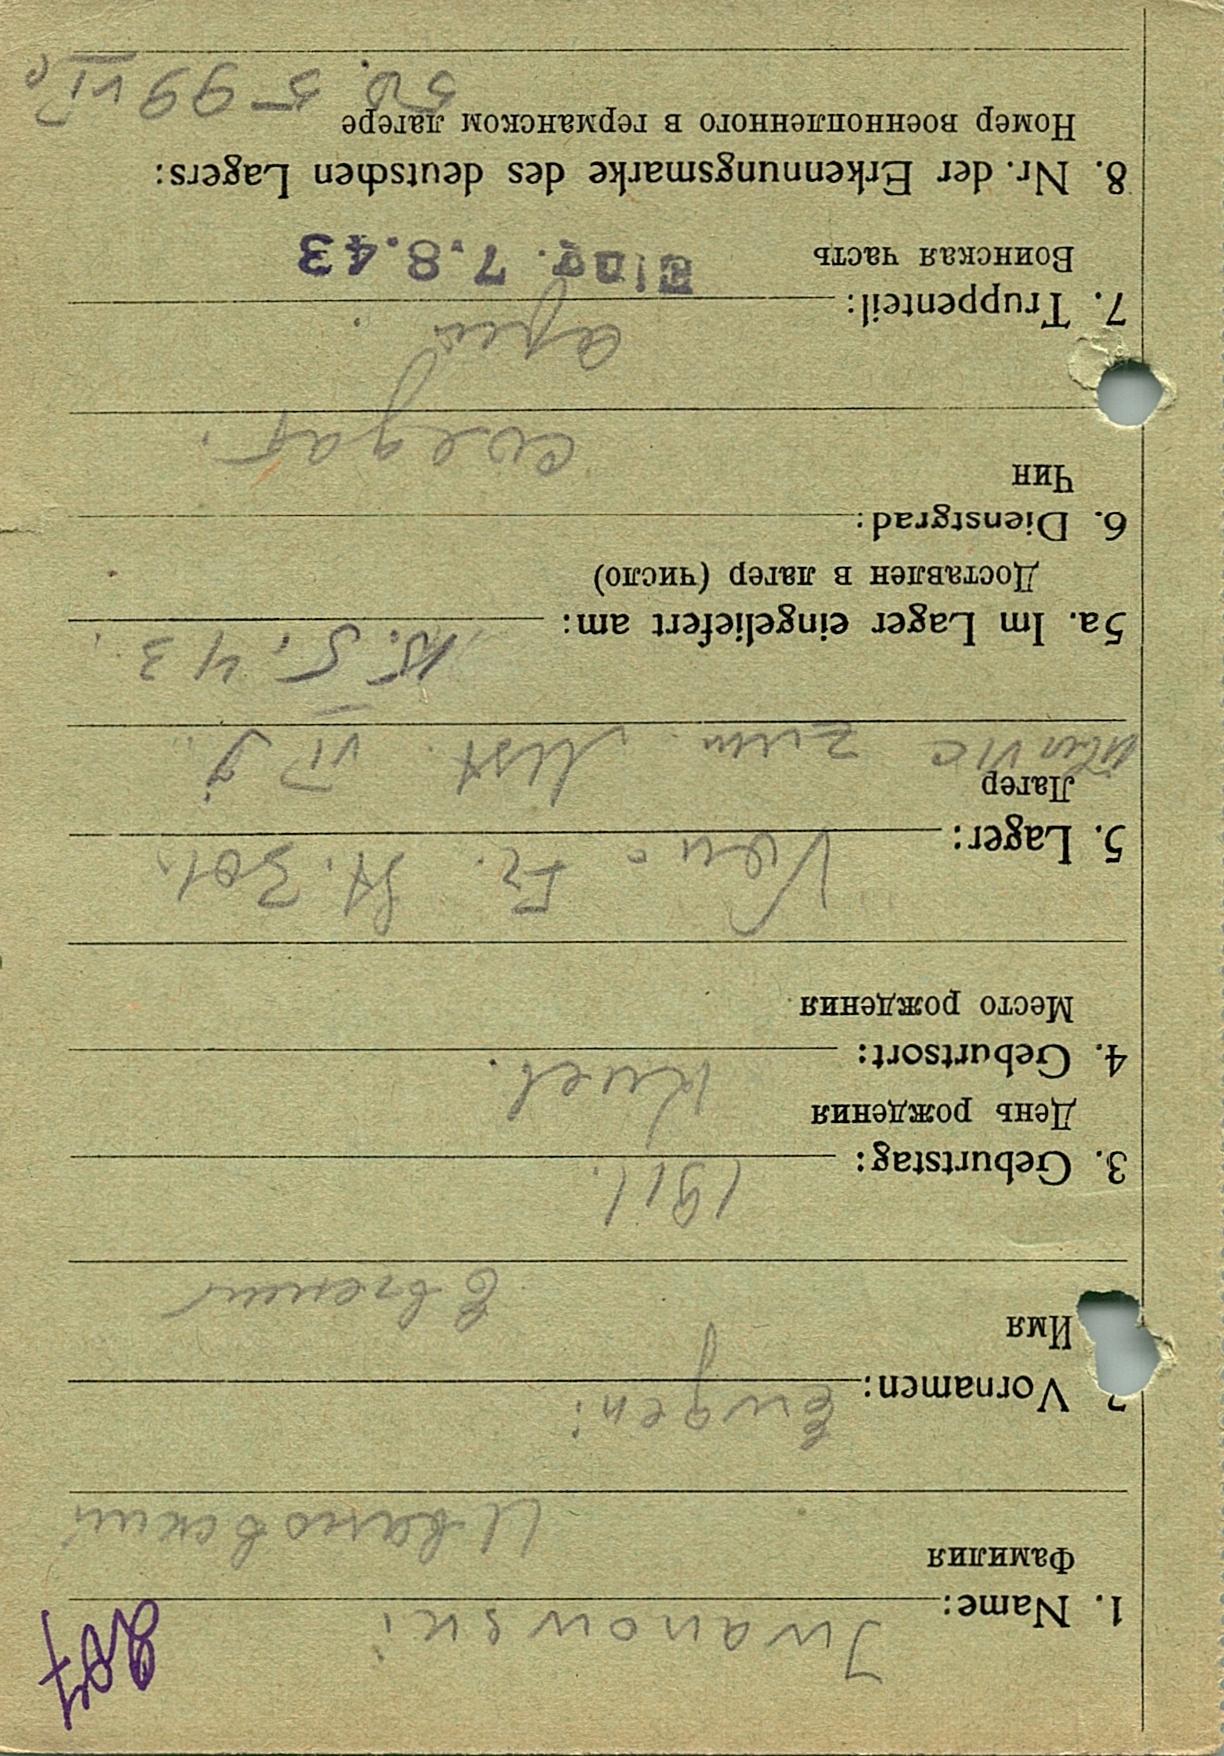 1. Name: Iwanowski
Фамилия Ивановский
Vornamen: Ewgeni
Имя Евгений
3. Geburtstag: 1911.
День рождения
4. Geburtsort: Kiel.
Место рождения
5. Lager: Von Fr. St. 301.
Лагер
über VI C zum St. VI J.
5a. Im Lager eingeliefert am: 15. 5. 43.
Доставлен в лагер (число)
6. Dienstgrad:
Чин
солдат.
7. Truppenteil:
Воинская часть Eing. 7.8.43
8. Nr. der Erkennungsmarke des deutschen Lagers:
Номер военнопленного в германском лагере